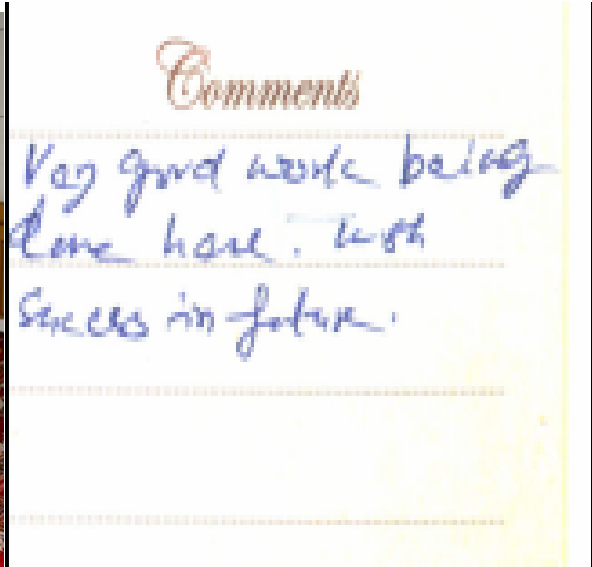 Comments
Very good work being
done here. Wish
success in future.